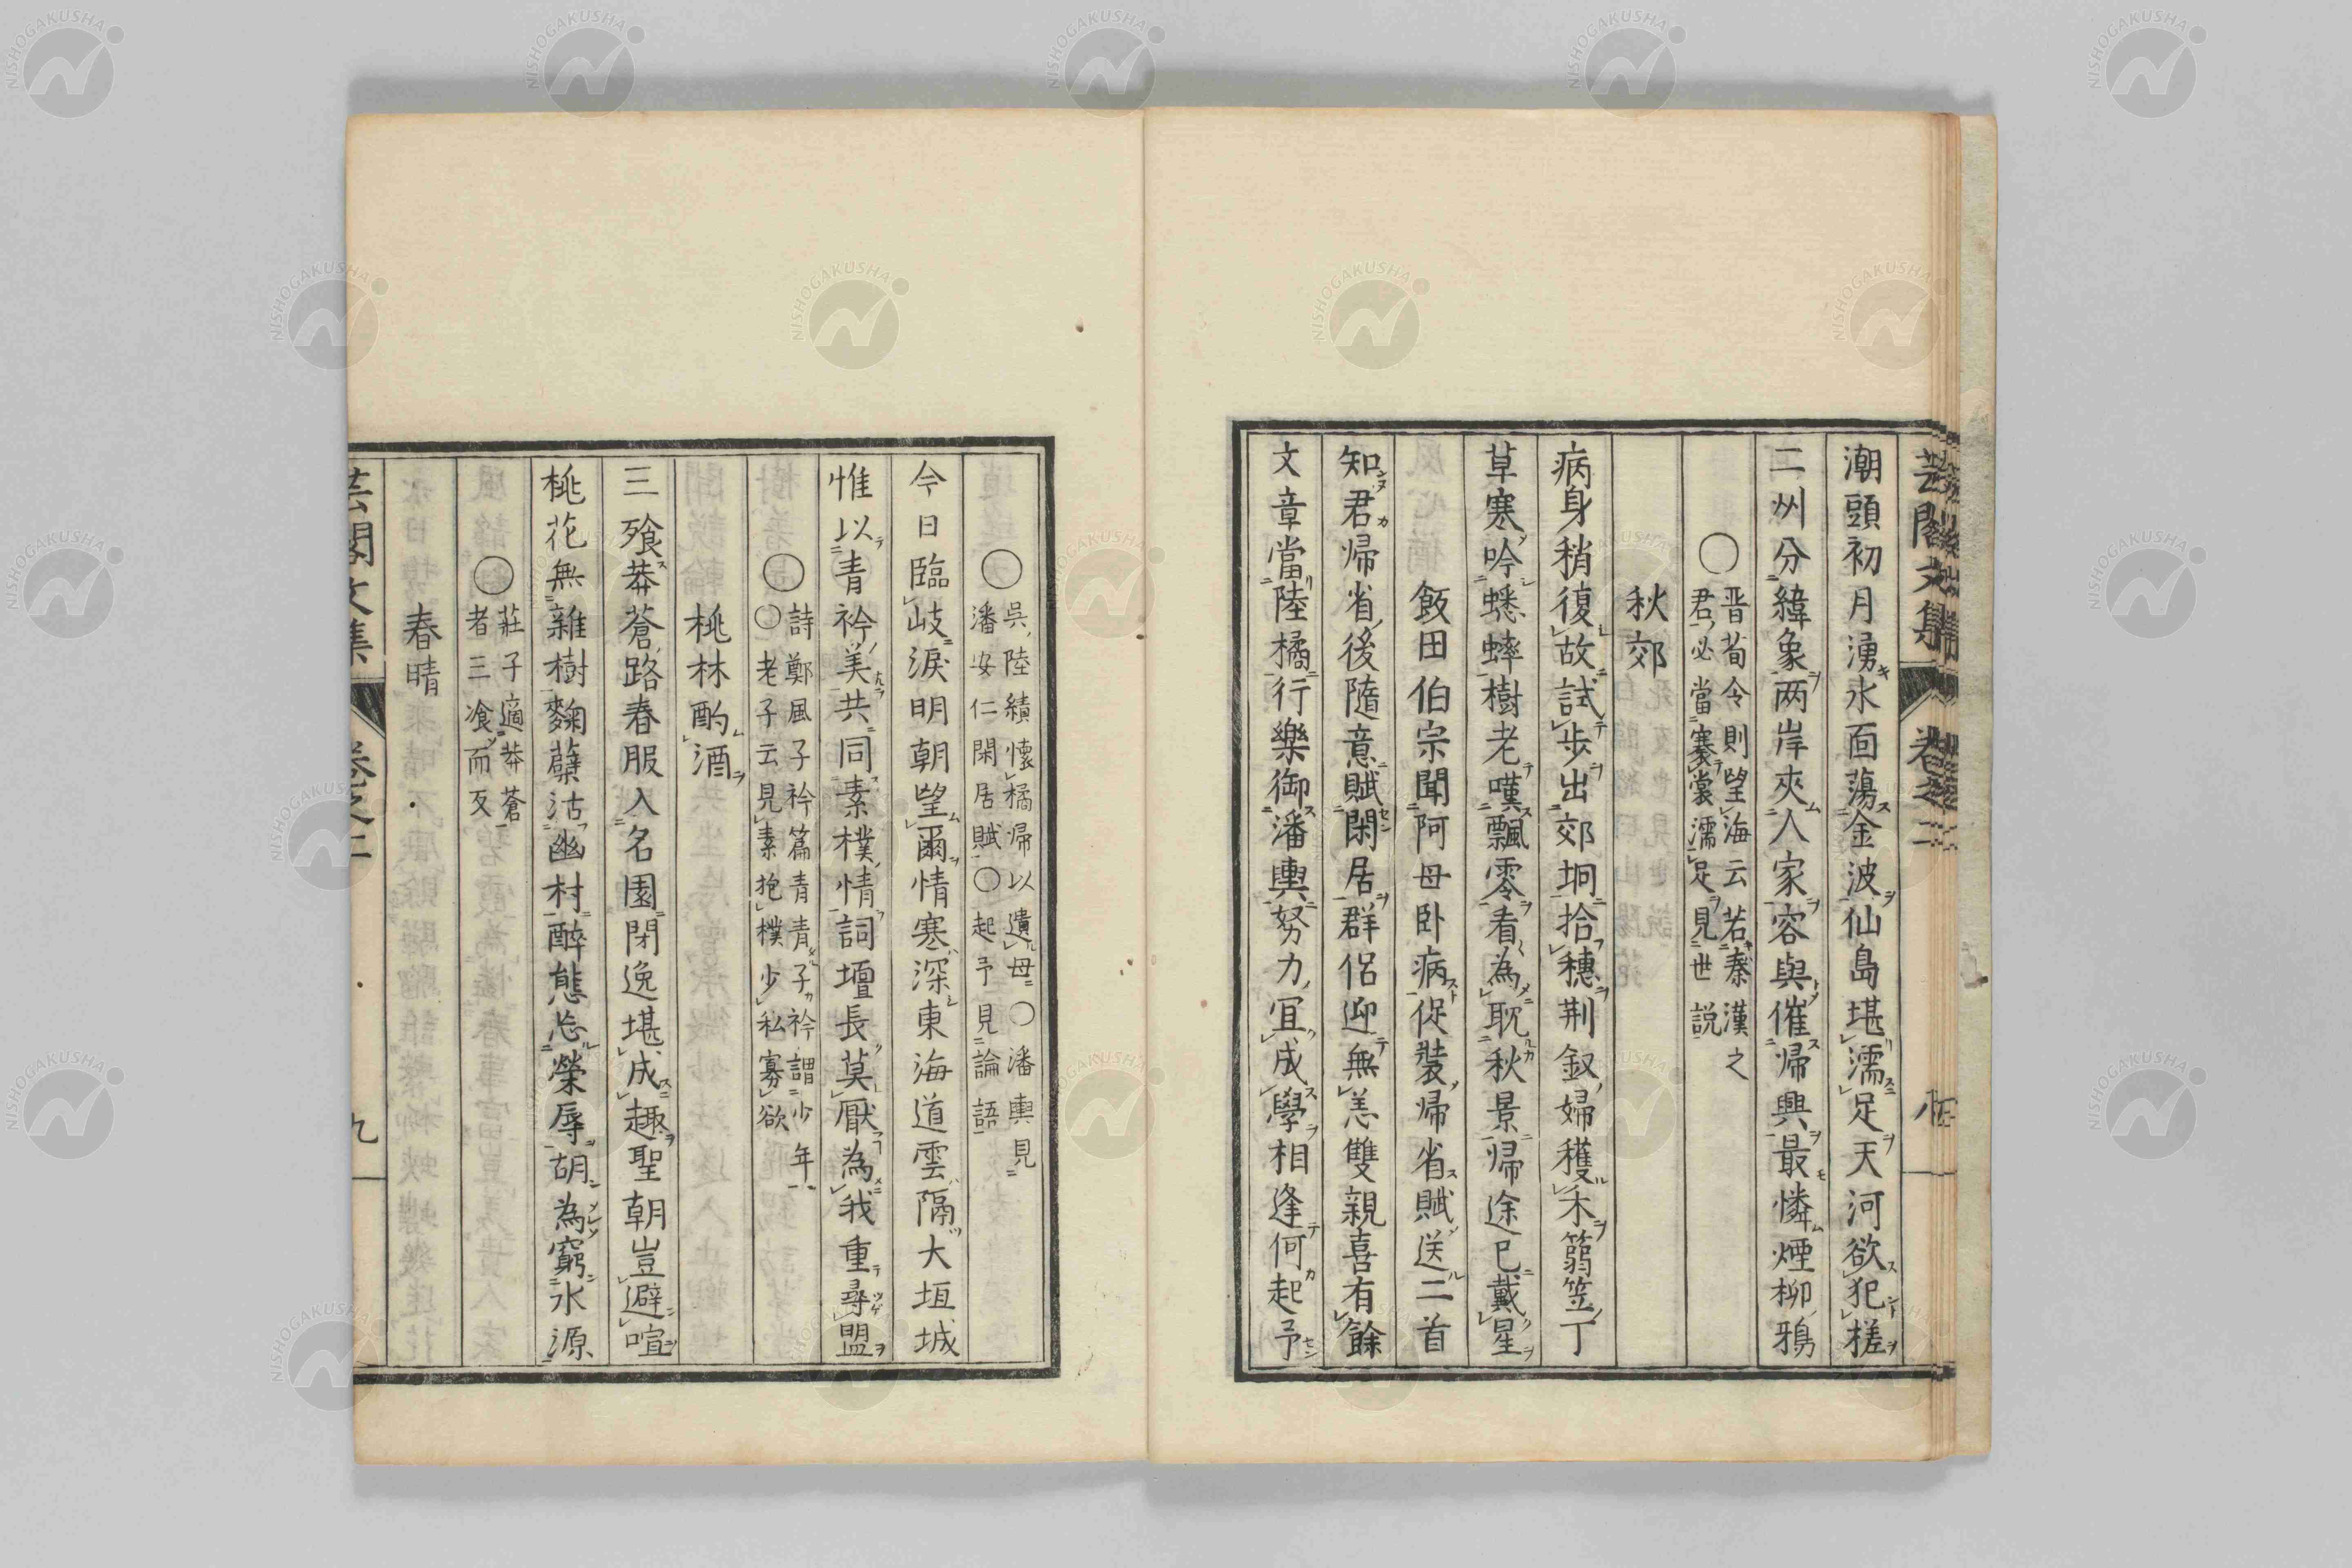 潮頭初月湧水面蕩金波仙島堪濡足天河欲犯槎
二州分緯象両岸夾人家容與催帰興最憐煙柳鴉
○晋荀令則望海云若秦漢之
君必當褰裳濡足見世説
秋郊
病身稍復故試歩出郊坰拾穗荆釵婦穫禾篛笠丁
草寒吟蟋蟀樹老嘆飄零看為耽秋景帰途已戴星
飯田伯宗聞阿母卧病促裝帰省賦送二首
知君帰省後隨意賦閑居群侶迎無恙雙親喜有餘
文章當陸橘行樂御潘輿努力冝成學相逢何起予
○吳陸績懷橘帰以遺母○潘輿見
潘安仁閑居賦○起予見論語
今日臨岐淚明朝望爾情寒深東海道雲隔大垣城
惟以青衿美共同素樸情詞壇長莫厭為我重尋盟
○詩鄭風子衿篇青青子衿謂少年
○老子云見素抱樸少私寡欲
桃林酌酒
三飱莽蒼路春服入名園閑逸堪成趣聖朝豈避喧
桃花無雜樹麴蘖沽幽村醉態忘榮辱胡為窮水源
○莊子適莽蒼
者三飡而反
春晴
芸閣文集 卷之二 九
NISHOGAKUSHA